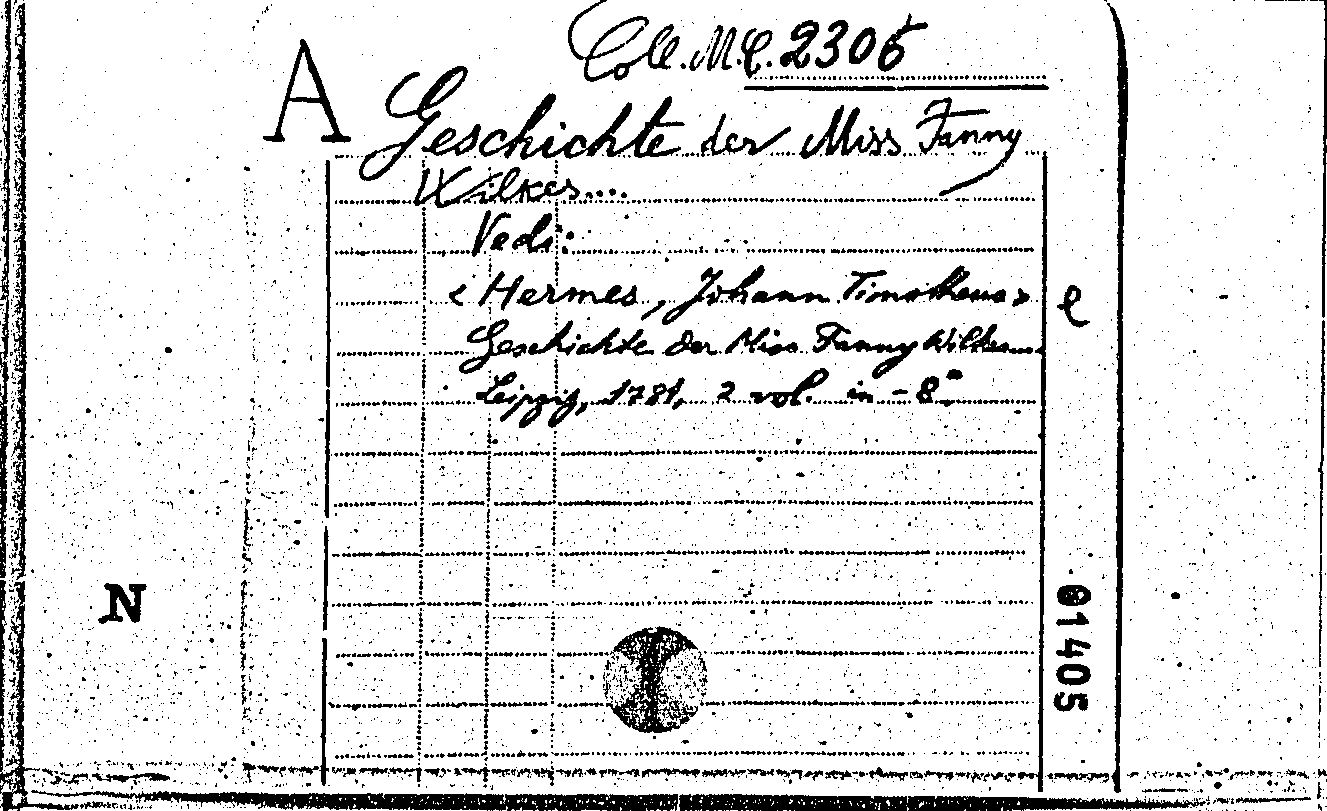 Coll. M.C. 2305
A Geschichte der Miss Fanny
Wilkes....
Vedi:
<Hermes, Johann Timotheus>
Geschichte der Miss Fanny Wilkes...
Leipzig, 1781, 2 vol. in-8°.
e
N
01405